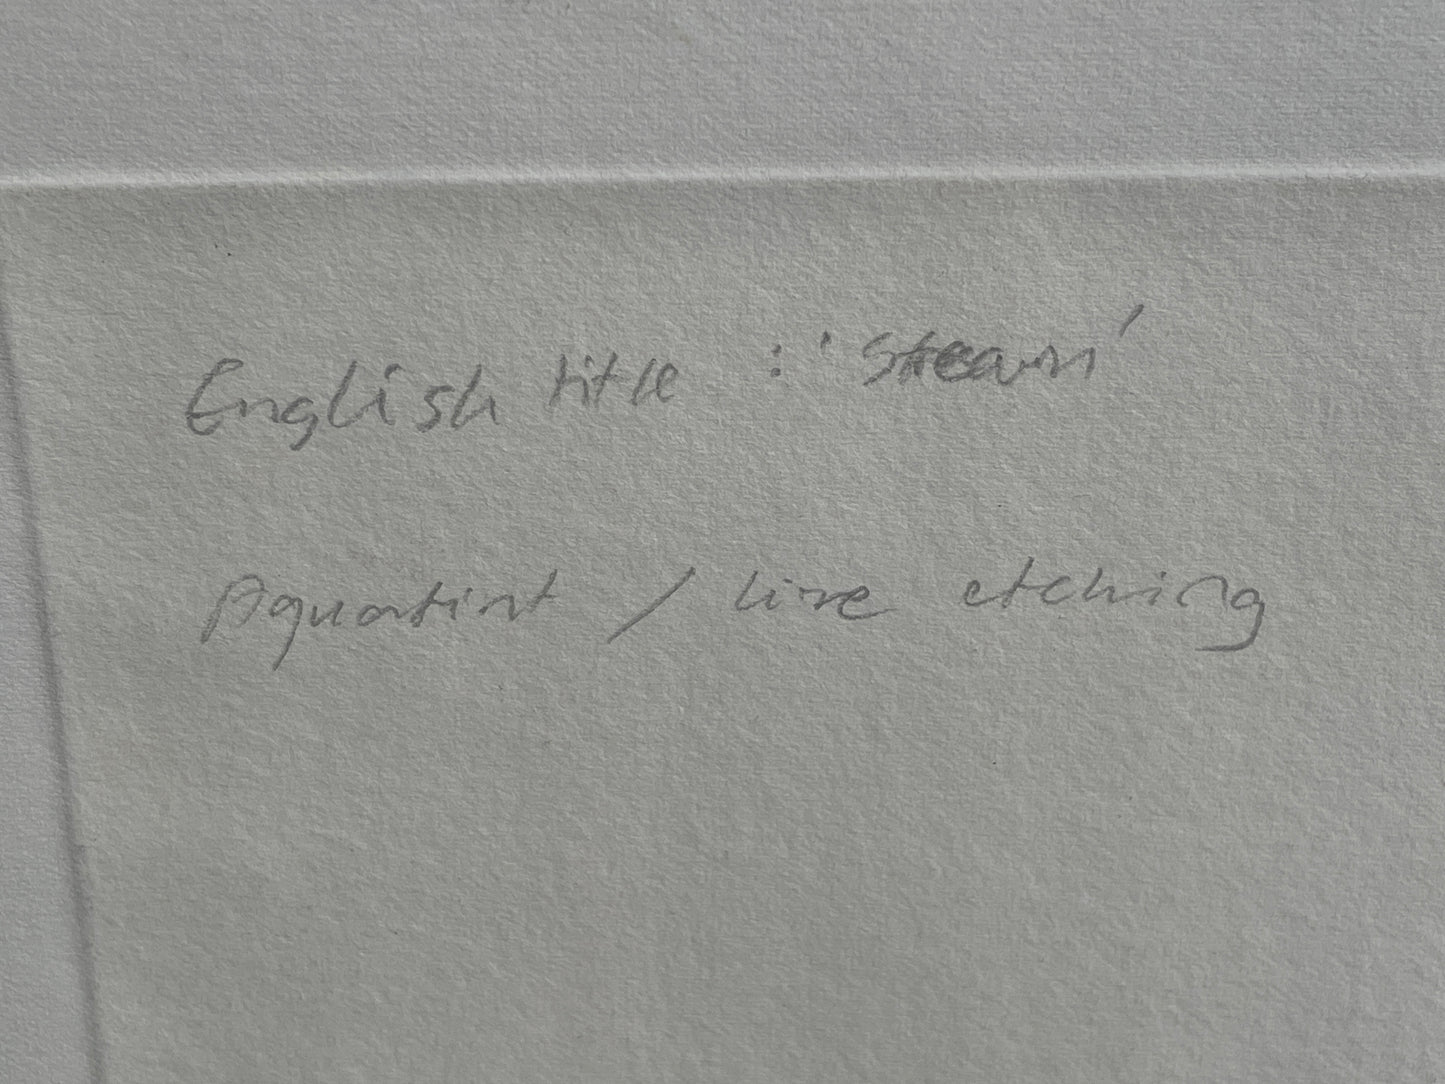 English title : 'Steam'
Aquatint / line etching